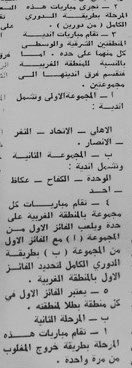 ٢ ـ تجرى مباريات هذه
المرحلة بطريقة الدوري
الكامل ( من دورين ) .
٣ ـ تقام مباريات اندية
المنطقتين الشرقية والوسطى
كل منهما على حده . اما
بالنسبة للمنطقة الغربية
فتقسم فرق انديتها الى
مجموعتين .
أ ـ المجموعة الاولى وتشمل
اندية :
الاهلى ـ الاتحاد ـ النفر
ـ الانصار .
ب ـ المجموعة الثانية
وتشمل اندية :
الوحدة ـ الكفاح ـ عكاظ
ـ احد
٤ ـ تقام مباريات كل
مجموعة بالمنطقة الغربية على
حدة ويلعب الفائز الاول من
المجموعة ( أ ) مع الفائز الاول
من المجموعة ( ب ) بطريقة
الدوري الكامل لتحديد الفائز
الاول بالمنطقة الغربية .
٥ ـ يعتبر الفائز الاول في
كل منطقة بطلا لمنطقته .
ب ـ المرحلة الثانية
١ ـ تقام مباريات هذه
المرحلة بطريقة خروج المغلوب
من مرة واحدة .